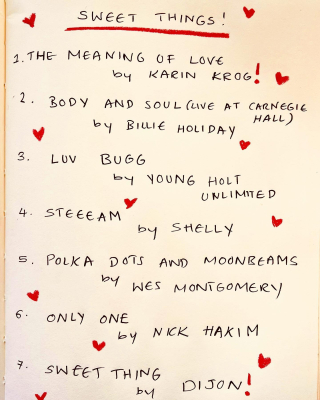 SWEET THINGS!
1. THE MEANING OF LOVE
by KARIN KROG!
2. BODY AND SOUL (LIVE AT CARNEGIE
HALL)
by BILLIE HOLIDAY
3. LUV BUGG
by YOUNG HOLT
UNLIMITED
4. STEEEAM
by SHELLY
5. POLKA DOTS AND MOONBEAMS
by WES MONTGOMERY
6. ONLY ONE
by NICK HAKIM
7. SWEET THING
by DIJON!